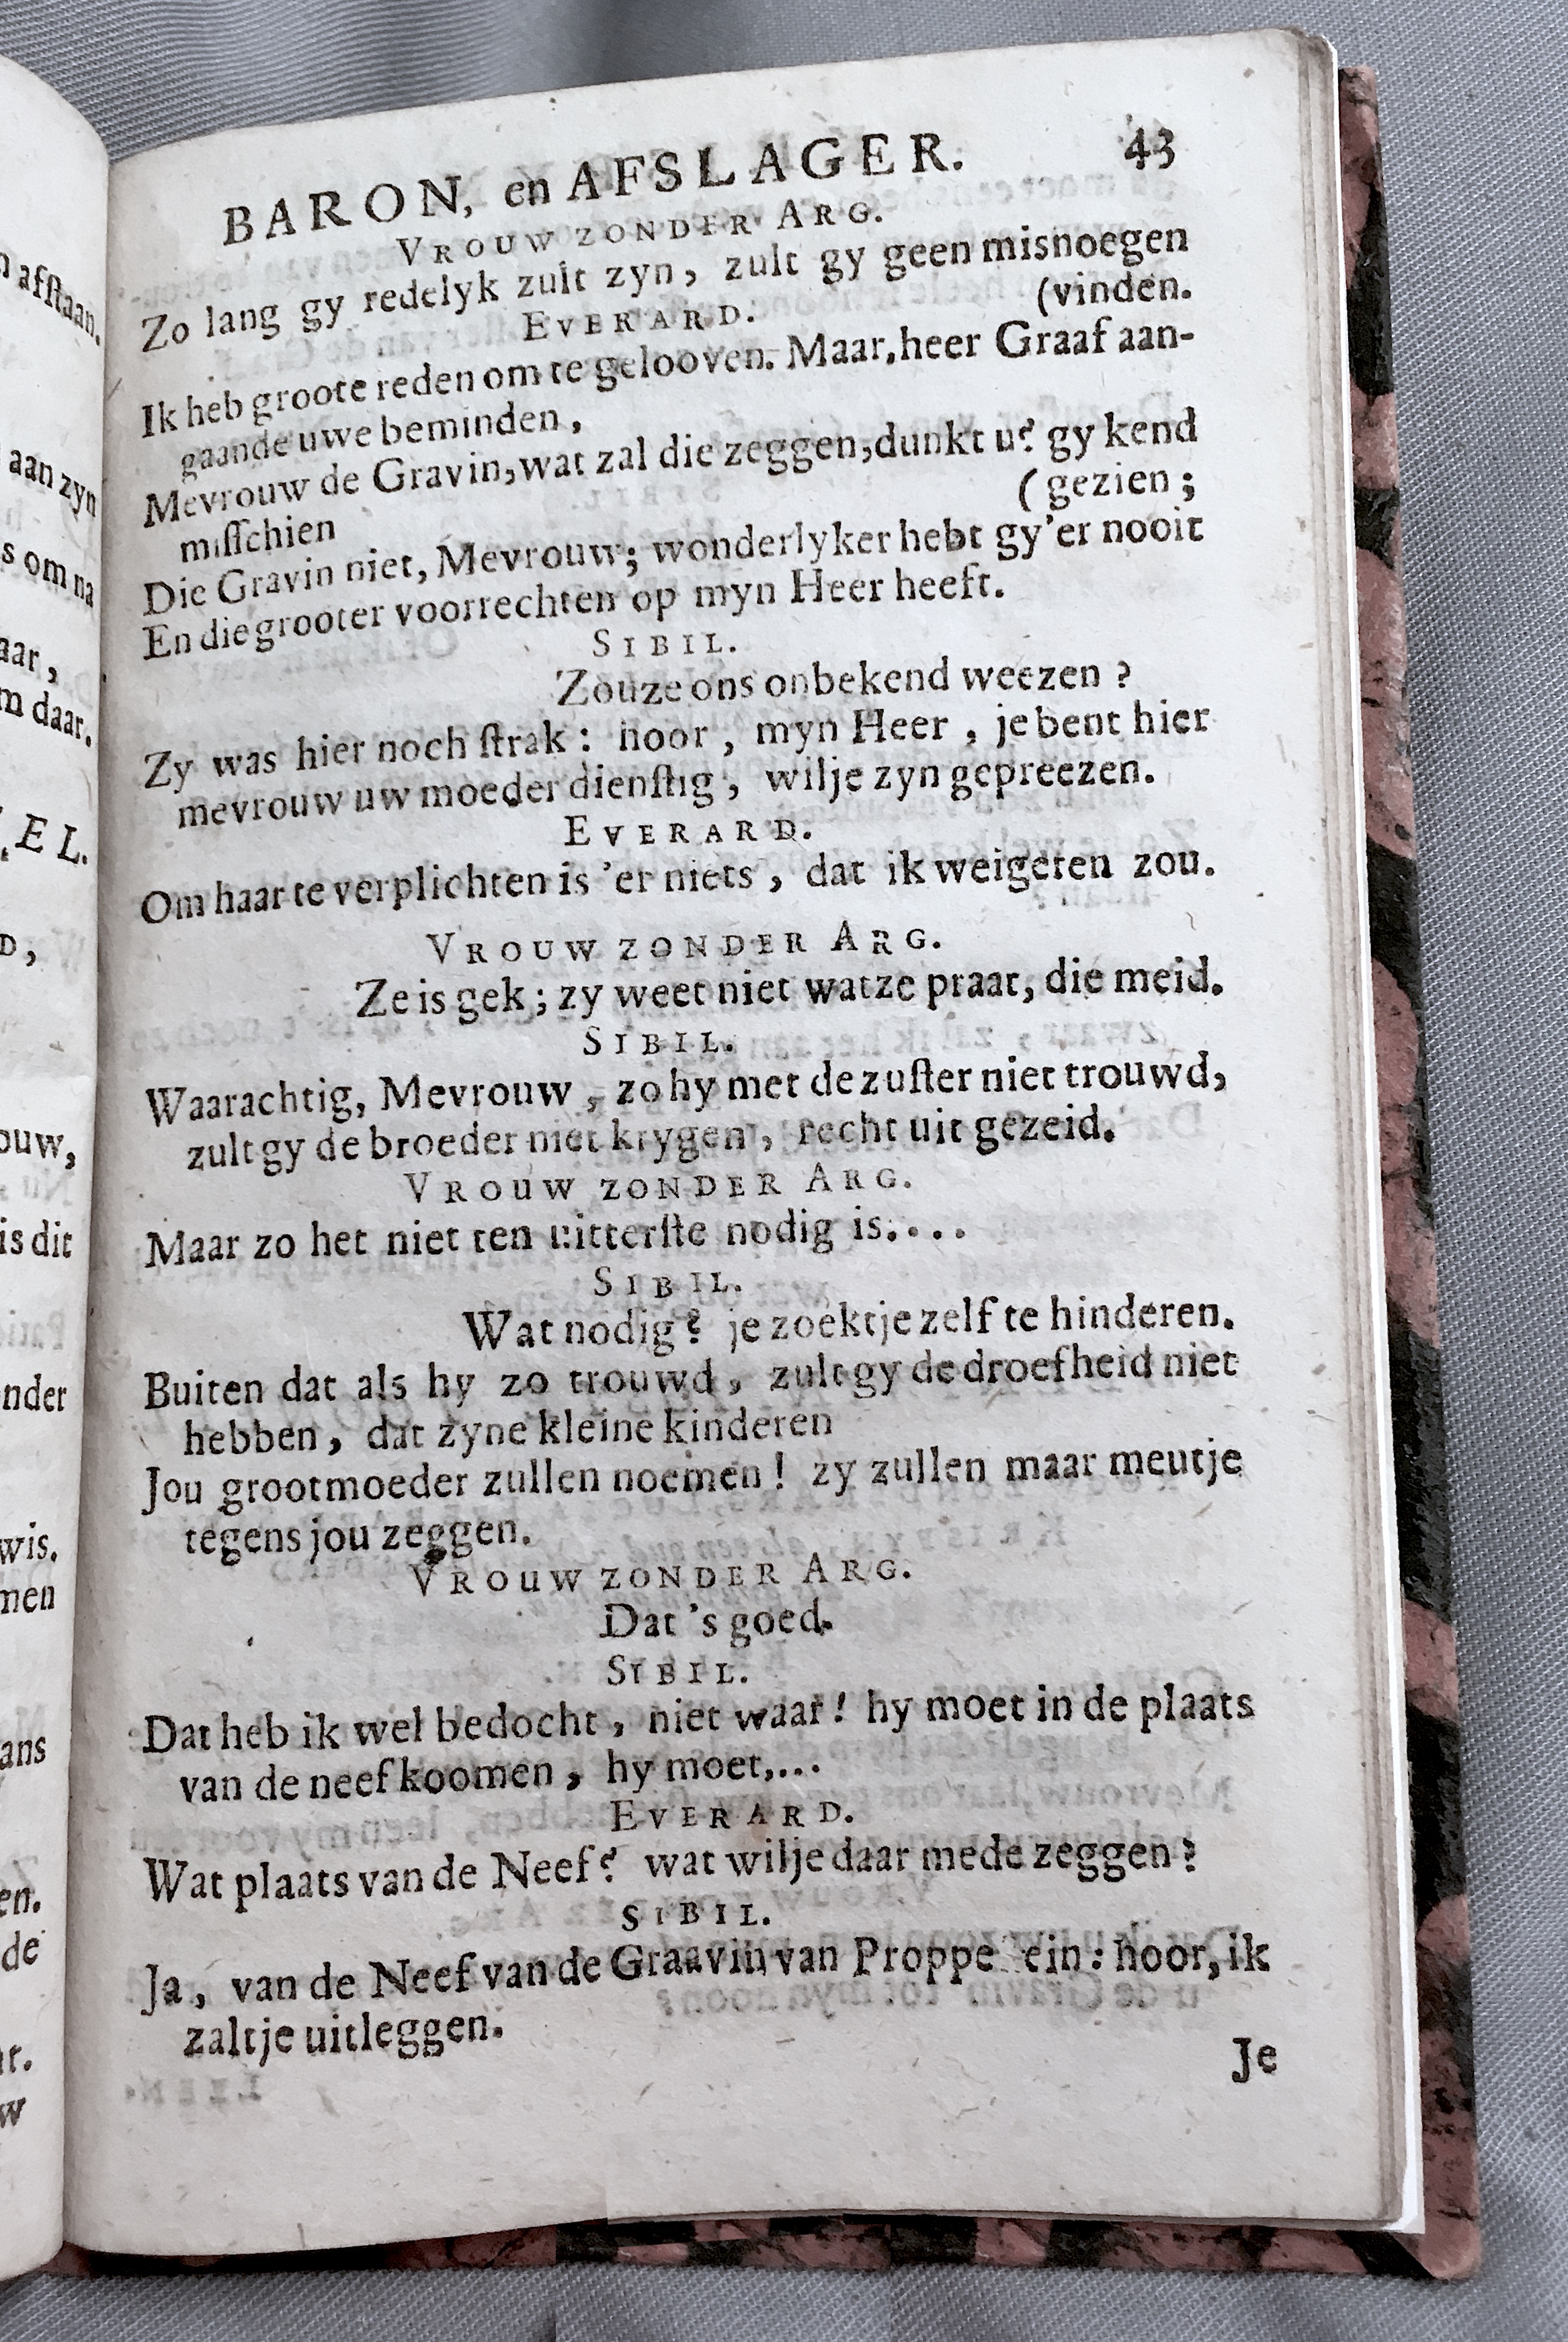 BARON, en AFSLAGER. 43
VROUW ZONDER ARG.
Zo lang gy redelyk zult zyn, zult gy geen misnoegen
(vinden.
EVERARD.
Ik heb groote reden om te gelooven. Maar, heer Graaf aan-
gaande uwe beminden,
Mevrouw de Gravin, wat zal die zeggen, dunkt u? gy kend
misſchien
(gezien;
Die Gravin niet, Mevrouw; wonderlyker hebt gy 'er nooit
En die grooter voorrechten op myn Heer heeft.
SIBIL.
Zouze ons onbekend weezen?
Zy was hier noch ſtrak: hoor, myn Heer, je bent hier
mevrouw uw moeder dienſtig, wilje zyn gepreezen.
EVERARD.
Om haar te verplichten is 'er niets, dat ik weigeren zou.
VROUW ZONDER ARG.
Ze is gek; zy weet niet watze praat, die meid.
SIBIL.
Waarachtig, Mevrouw, zo hy met de zuſter niet trouwd,
zult gy de broeder niet krygen, recht uit gezeid.
VROUW ZONDER ARG.
Maar zo het niet ten uitterſte nodig is....
SIBIL.
Wat nodig? je zoektje zelf te hinderen.
Buiten dat als hy zo trouwd, zult gy de droefheid niet
hebben, dat zyne kleine kinderen
Jou grootmoeder zullen noemen! zy zullen maar meutje
tegens jou zeggen.
VROUW ZONDER ARG.
Dat 's goed.
SIBIL.
Dat heb ik wel bedocht, niet waar! hy moet in de plaats
van de neef koomen, hy moet,...
EVERARD.
Wat plaats van de Neef? wat wilje daar mede zeggen?
SIBIL.
Ja, van de Neef van de Graavin van Proppe ein: hoor, ik
zaltje uitleggen.
Je
n afſtaan.
aan zyn
s om na
aar,
m daar.
EL.
D,
ouw,
is dit
nder
wis.
men
ans
en.
de
ar.
w